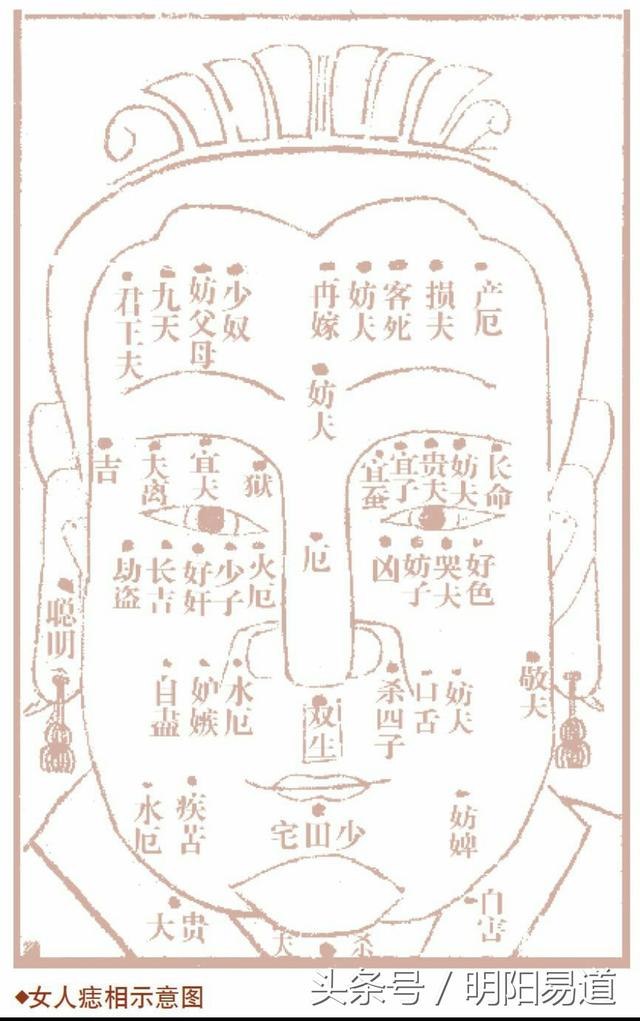 君王夫
九天
妨父母
少奴
再嫁
妨夫
客死
损夫
产厄
妨夫
吉
夫离
宜夫
狱
宜蚕
宜子
贵夫
妨夫
长命
劫盗
长吉
好奸
少子
火厄
厄
凶
妨子
哭夫
好色
聪明
自盡
妒嫉
水厄
双生
杀四子
口舌
妨夫
敬夫
水厄
疾苦
宅田少
妨婢
大贵
夫
杀
自害
◆女人痣相示意图
头条号 / 明阳易道